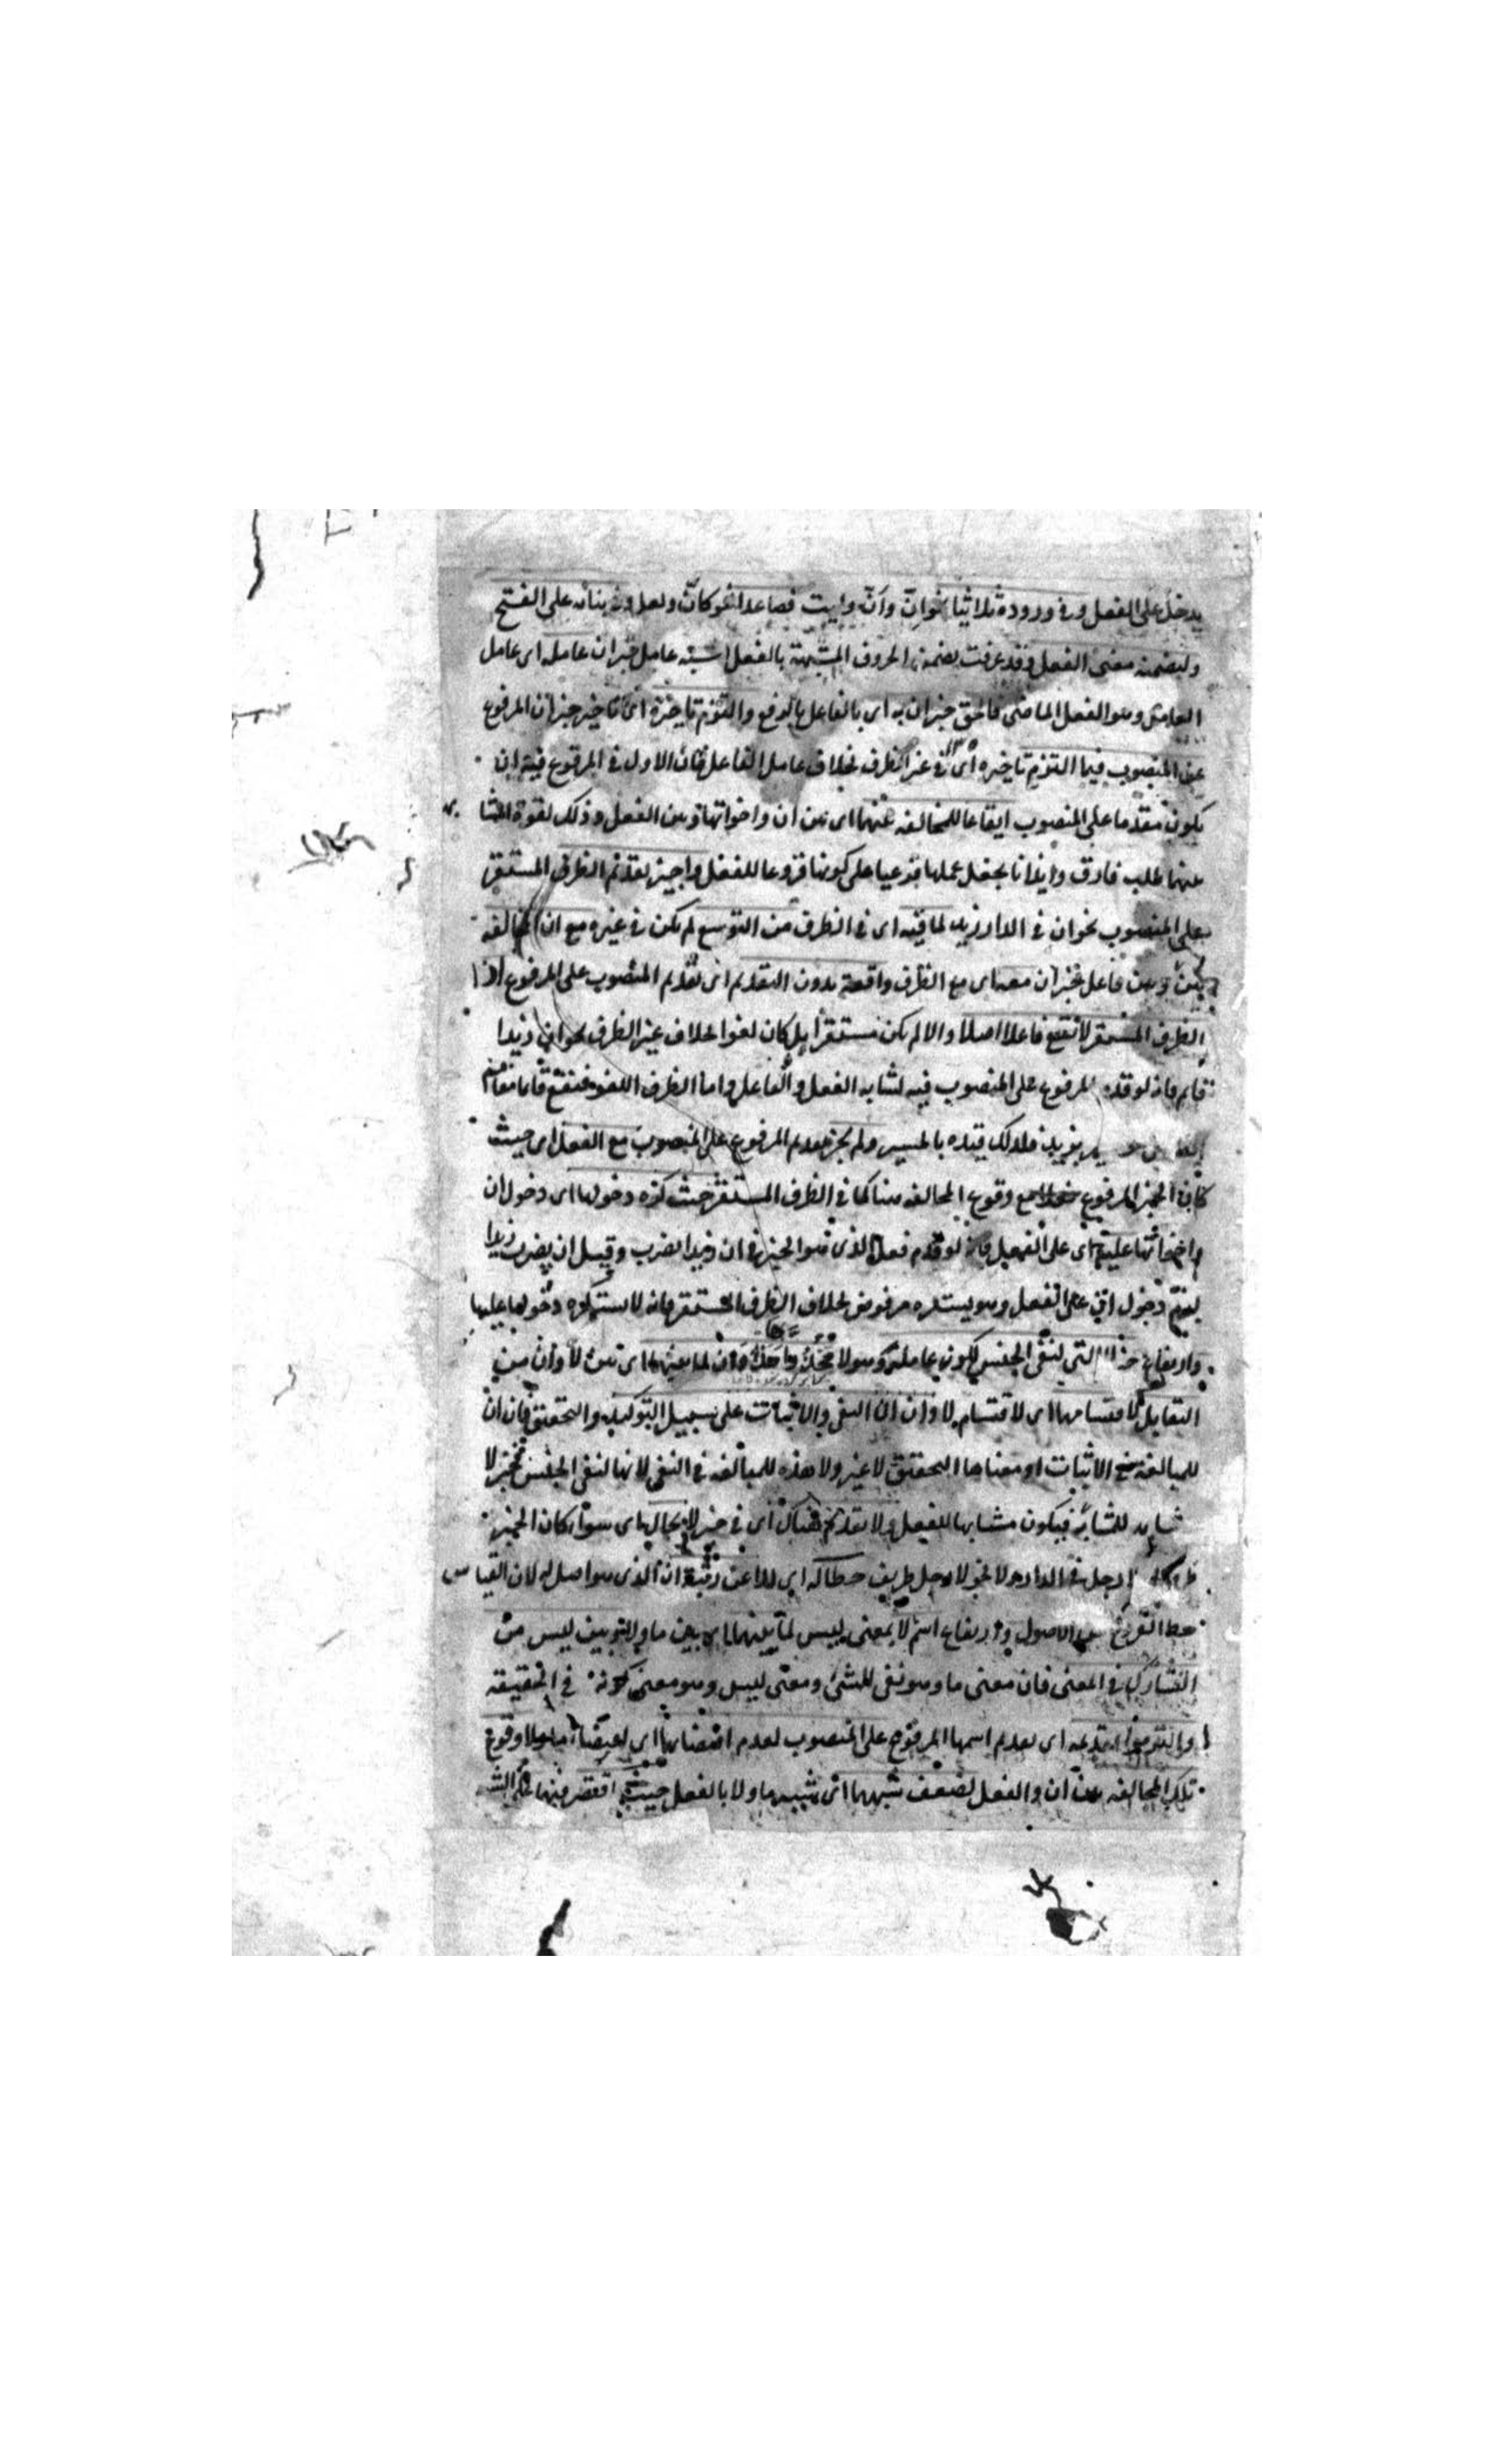 يدخل على الفعل وفي وروده ثلاثيا نحو ان وأن وليت فصاعدا نحو كأن ولعل وفي بنائه على الفتح
ولتضمنه معنى الفعل وقد عرفت تضمن الحروف المشبهة بالفعل اشبه عامل خبر ان عامله اى عامل
الفاعل وهو الفعل الماضى فالحق خبر ان به اى بالفاعل بالرفع والتزم تاخيره اى تاخير خبر ان المرفوع
عن المنصوب فيما التزم تاخيره اى في غير الظرف بخلاف عامل الفاعل فان الاول في المرفوع فيه ان
يكون مقدما على المنصوب ايقاعا للمخالفة بينهما اى بين ان واخواتها وبين الفعل وذلك لقوة المشابهة
بينهما طلب فارق وايذانا بجعل عملها فرعيا على كونها فروعا للفعل واجيز تقديم الظرف المستقر
على المنصوب نحو ان في الدار زيد لما فيه اى في الظرف من التوسع لم يكن في غيره مع ان المخالفة
بينه وبين فاعل خبر ان معه اى مع الظرف واقعة بدون التقديم اى تقديم المنصوب على المرفوع اذا
الظرف المستقر لا تقع فاعلا اصلا والا لم يكن مستقرا بل كان لغوا بخلاف غير الظرف نحو ان زيدا
قايم فانه لو قدم المرفوع على المنصوب فيه لشابه الفعل والفاعل واما الظرف اللغو فتقع قايما مقام
بزيد فلذلك قيده بالمستقر ولم يجز تقديم المرفوع على المنصوب مع الفعل اى حيث
كان الخبر المرفوع مع وقوع المخالفة هنا كما في الظرف المستقر حيث كره دخولها اى دخول ان
واخواتها عليه اى على الفعل فانه لو قدم فعل الذى هو الخبر في ان زيدا يضرب وقيل ان يضرب زيدا
يلزم دخول ان على الفعل وهو يستكره مرفوض بخلاف الظرف المستقر فانه لا يستكره دخولها عليها
وارتفاع خبر لا التي لنفى الجنس لكونه عاملة وهو لا وان لما بينهما اى بين لا وان من
التقابل لاقتسامهما اى لاقتسام لا وان النفى والاثبات على سبيل التوكيد والتحقيق فان ان
للمبالغة في الاثبات او معناها التحقيق لا غير ولا هذه للمبالغة في النفى لانها لنفى الجنس فخبر لا
مشابه للمشابه فيكون مشابها للفعل ولا تقديم هناك اى في خبر لا بحال اى سواء كان الخبر
لا رجل في الدار او لا نحو لا رجل ظريف حطا له اى للا عن رتبة ان الذى هو اصل له لان القياس
حط الفروع عن الاصول وارتفاع اسم لا بمعنى ليس لما بينهما اى بين ما ولا وبين ليس من
التشارك في المعنى فان معنى ما وهو نفى للشئ ومعنى ليس وهو معنى كونه في الحقيقة
والتزموا تقديمه اى تقديم اسمها المرفوع على المنصوب لعدم اقتضائهما اى لعدم اقتضاء ما ولا وقوع
تلك المخالفة بين ان والفعل لضعف شبههما اى شبه ما ولا بالفعل حيث اقتصر فيهما على الشبه